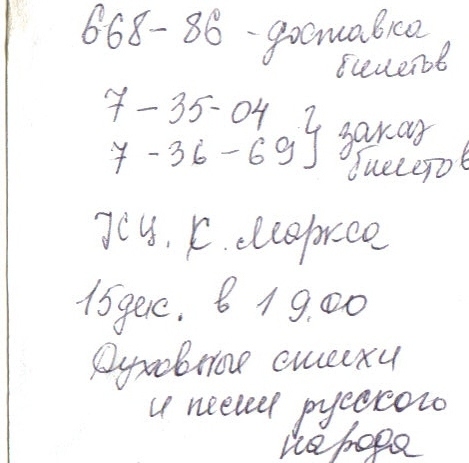 668-86 - доставка
билетов
7-35-04
7-36-69 } заказ
билетов
КЦ. К. Маркса
15 дек. в 19.00
Духовные стихи
и песни русского
народа